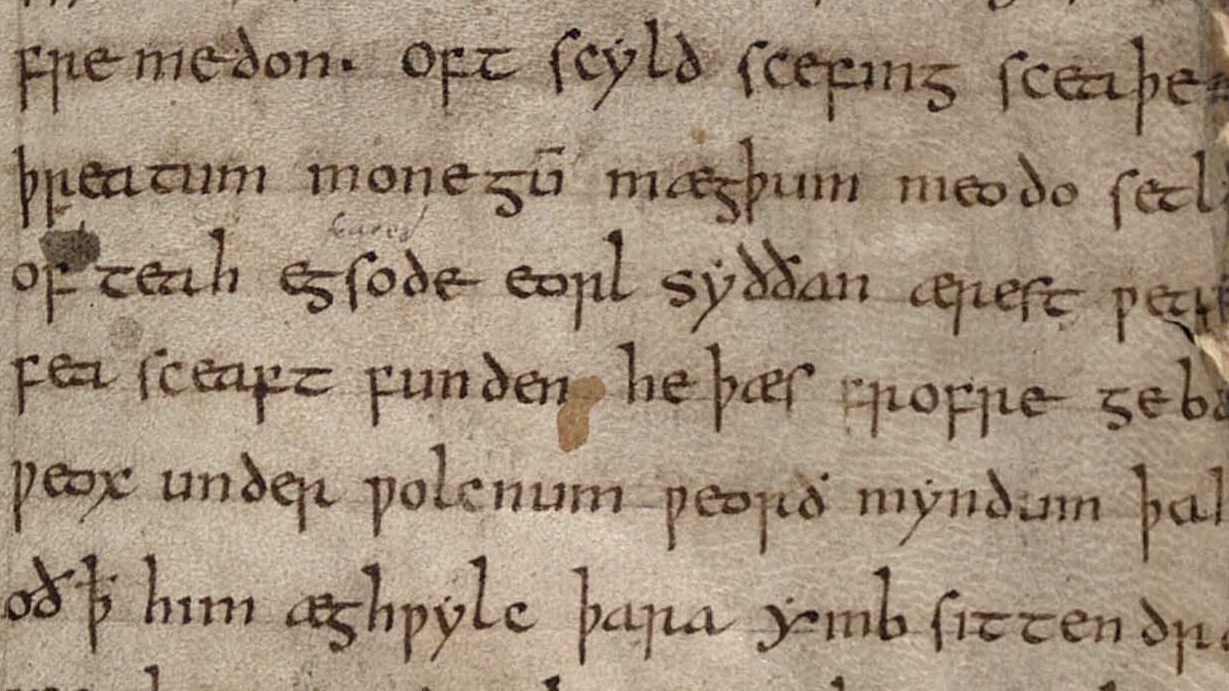 fremedon. Oft scyld scefing sceaþe
þreatum monegū mægþum meodo setl
of teah egsode eorl syððan ærest wear
fea sceaft funden he þæs frofre geba
weox under wolcnum weorð myndum þah
oð ꝥ him æghwylc þara ymb sittendr